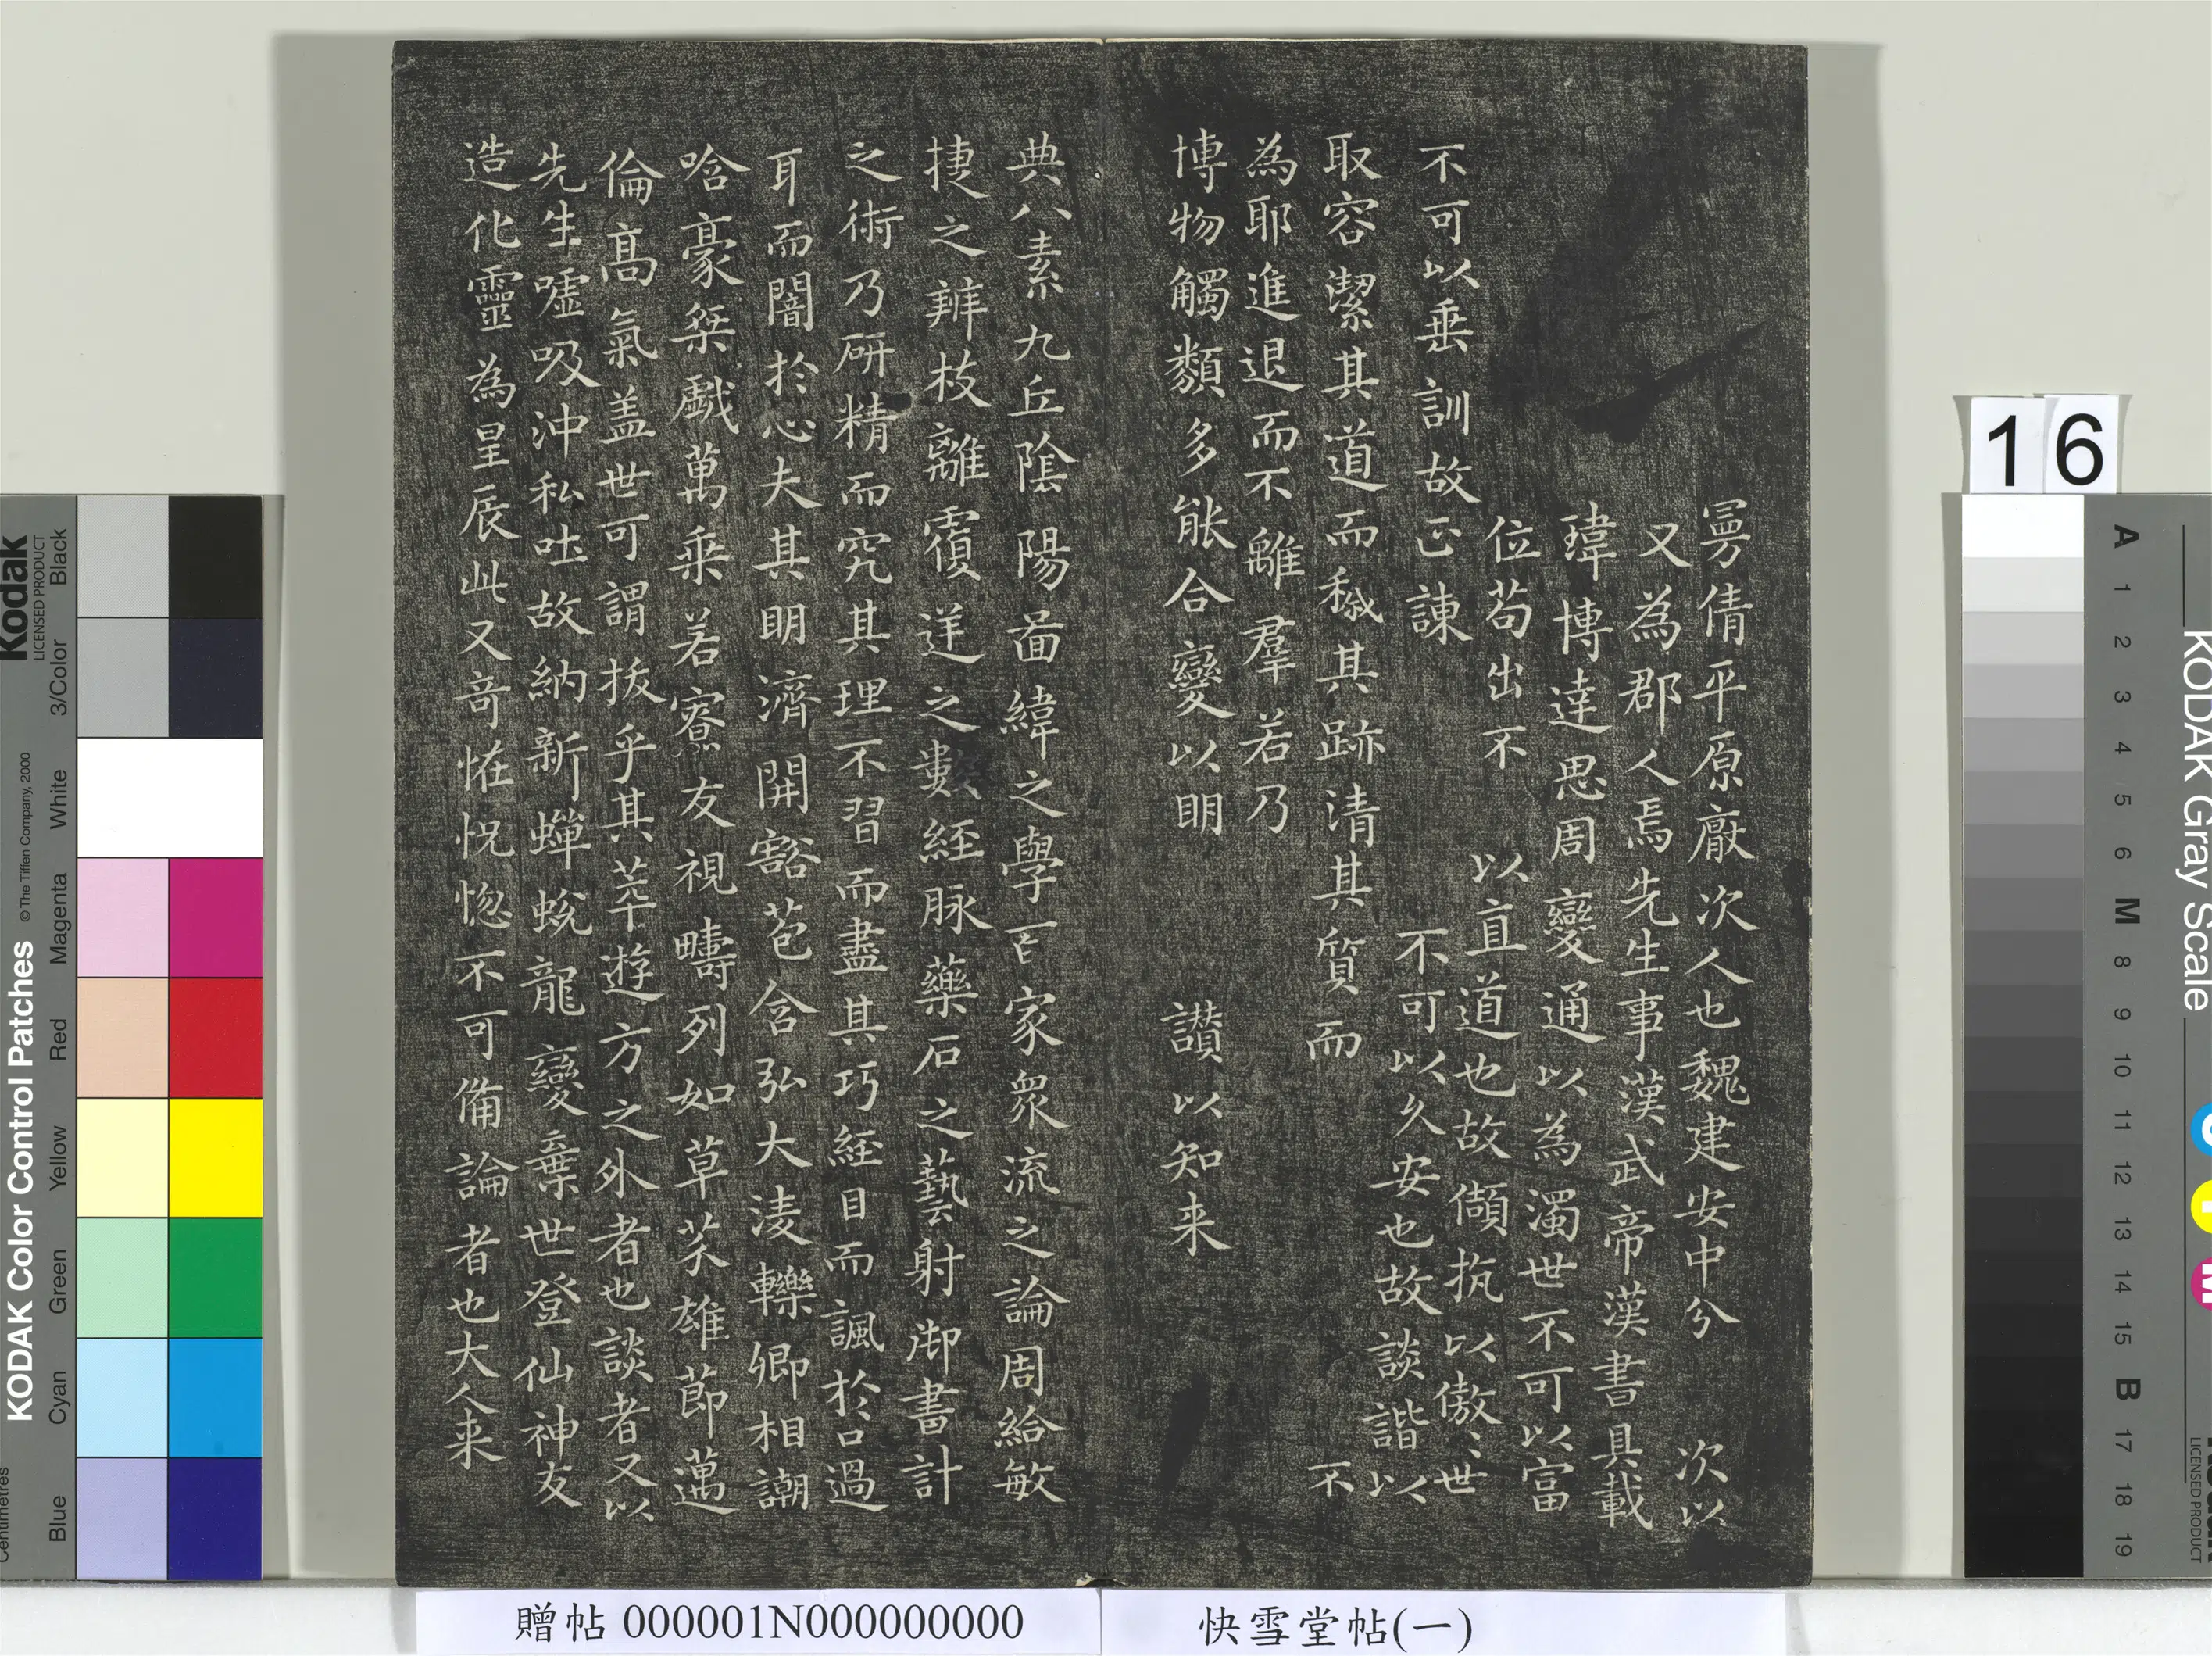 曼倩平原厭次人也魏建安中分 次以
又為郡人焉先生事漢武帝漢書具載
瑋博達思周變通以為濁世不可以富
位苟出不 以直道也故傾抗以傲〻世
不可以垂訓故正諫 不可以久安也故談諧以
取容潔其道而穢其跡清其質而 不
為耶進退而不離羣若乃
博物觸類多能合變以明 讚以知来
典八素九丘陰陽啚緯之學百家衆流之論周給敏
捷之辨枝離覆逆之數經脉藥石之藝射御書計
之術乃研精而究其理不習而盡其巧經目而諷於口過
耳而闇於心夫其明濟開豁苞含弘大淩轢卿相謿
唅豪桀戲萬乘若寮友視疇列如草芥雄節邁
倫高氣盖世可謂拔乎其萃遊方之外者也談者又以
先生噓吸沖私吐故納新蟬蛻龍變棄世登仙神友
造化靈為星辰此又奇怪怳惚不可備論者也大人来
快雪堂帖(一)
贈帖 000001N000000000
16
KODAK Color Control Patches
© The Tiffen Company, 2000
Kodak
LICENSED PRODUCT
Centimetres
Blue Cyan Green Yellow Red Magenta White 3/Color Black
KODAK Gray Scale
LICENSED PRODUCT
C Y M
A 1 2 3 4 5 6 M 8 9 10 11 12 13 14 15 B 17 18 19